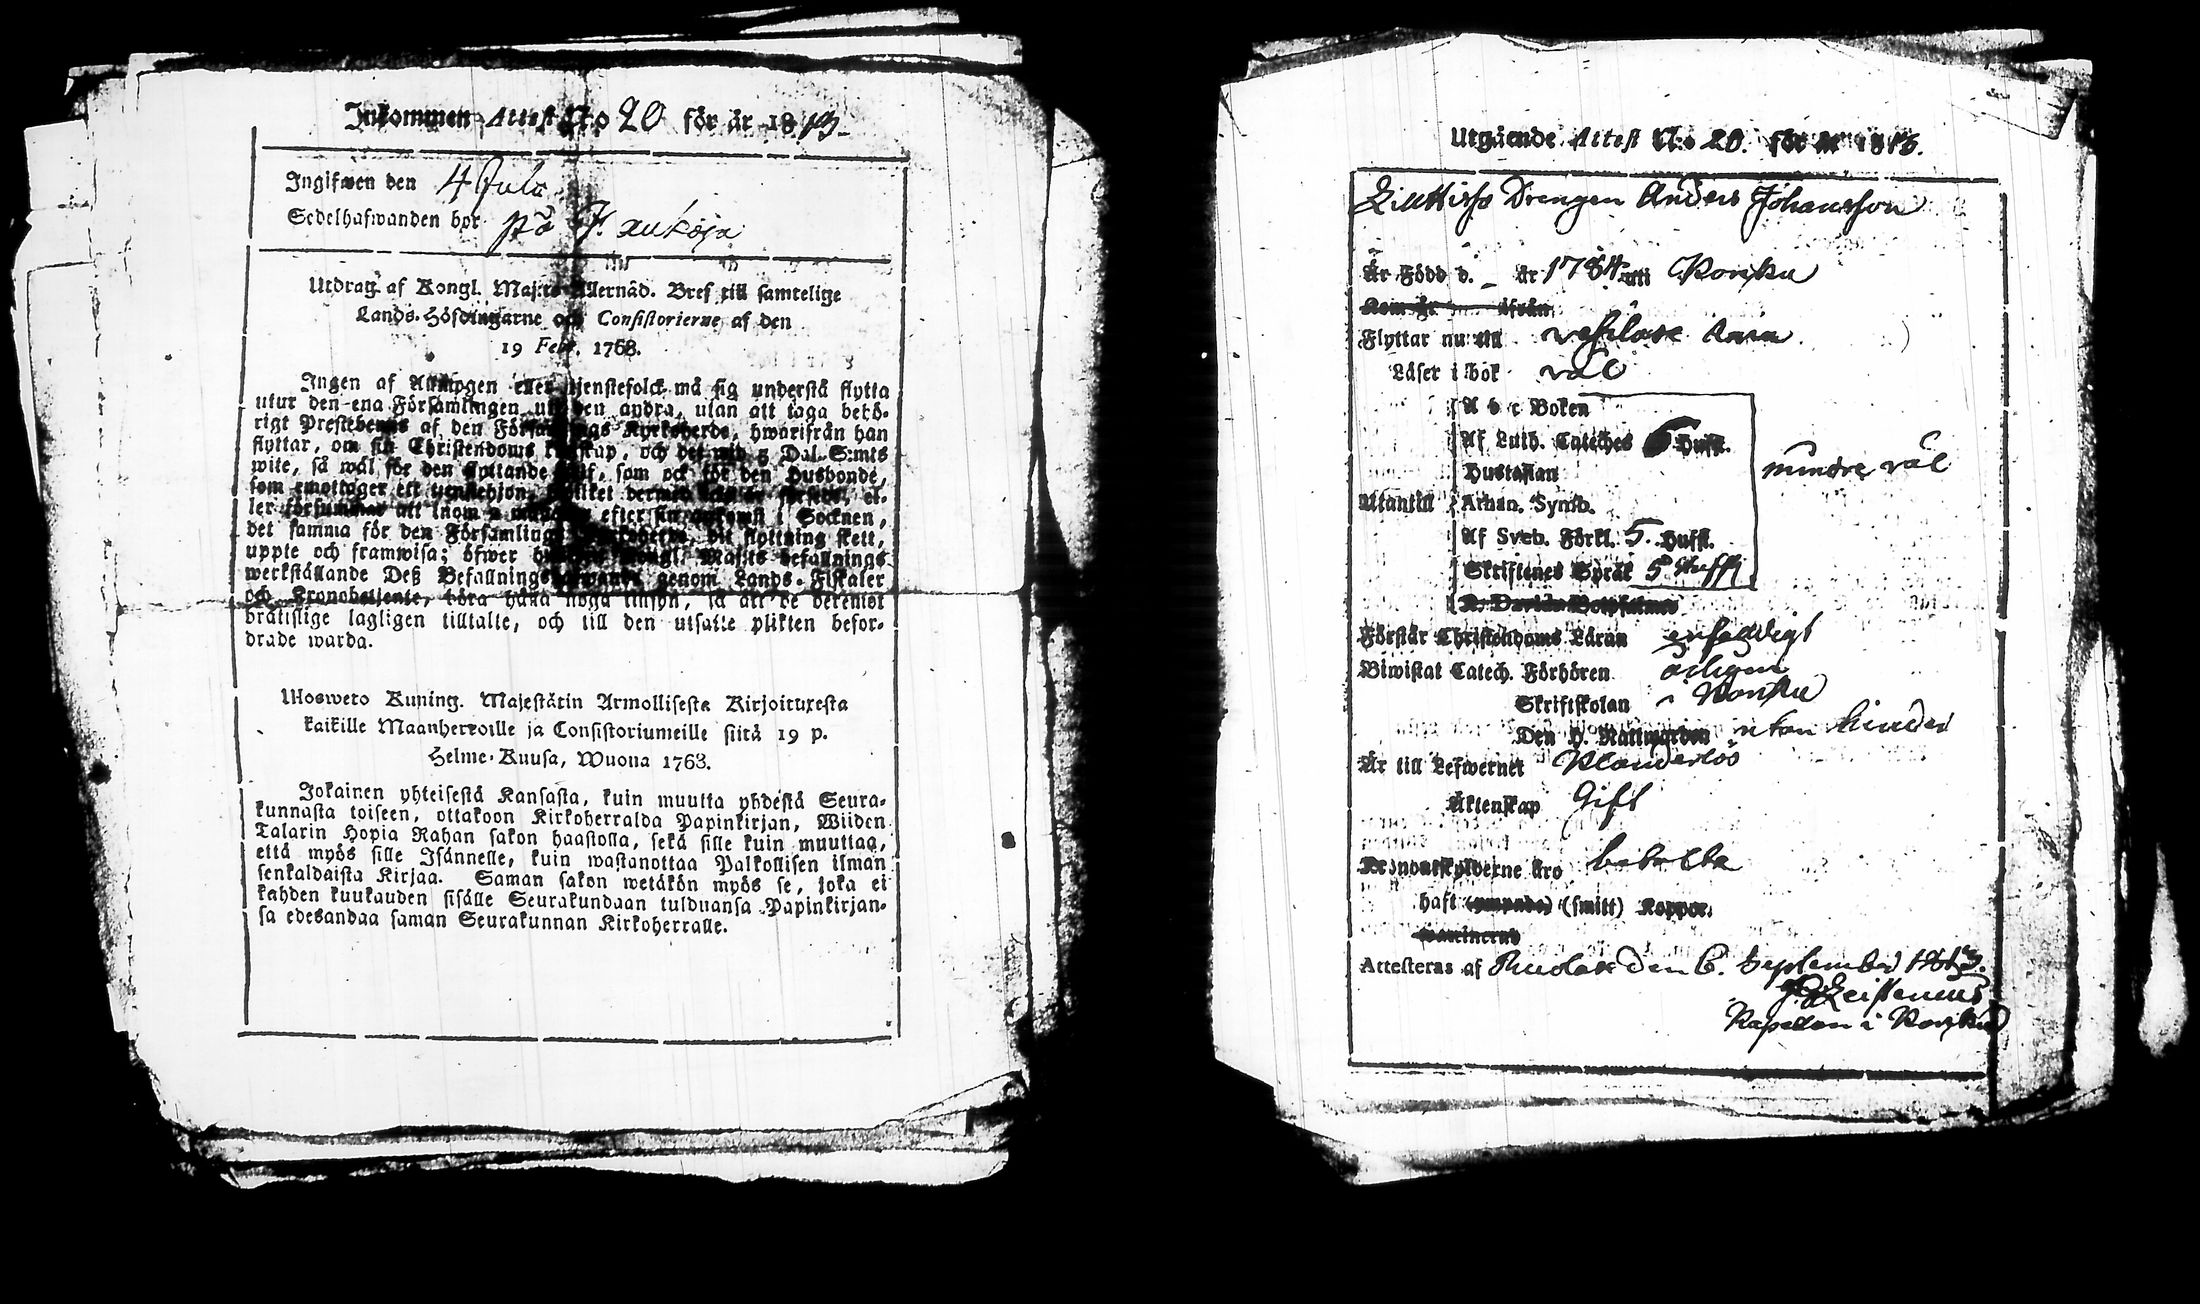 Inkommen Attest N:o 20 för år 1813.
Ingifwen den 4 Juli
Sedelhafwanden bor på
Utdrag af Kongl. Maj:ts Allernåd. Bref till samtelige
Lands-Höfdingarne och Consistorierne af den
19 Febr. 1768.
Ingen af Allmogen eller tjenstefolck må sig understå flytta
utur den ena Församlingen uti den andra, utan att taga behö-
rigt Prestebewis af den Församlings Kyrkoherde, hwarifrån han
flyttar, om sin Christendoms kunskap, och det wid 5 Dal. S:mts
wite, så wäl för den flyttande sielf, som ock för den Husbonde,
som emottager ett tjenstehjon, hwilket dermed icke är försedt, el-
ler försummar att inom 2 månader efter sin ankomst i Socknen,
det samma för den Församlings Kyrkoherde, dit flyttning skett,
uppte och framwisa; öfwer hwilken Kongl. Maj:ts befallnings
werkställande Deß Befallningshafwande genom Lands-Fiskaler
och Kronobetjente, böra hålla noga tillsyn, så att de deremot
bråtislige lagligen tilltalte, och till den utsatte plikten befor-
drade warda.
Ulosweto Kuning. Majestätin Armollisesta Kirjoituxesta
kaikille Maanherroille ja Consistoriumeille siitä 19 p.
Helme-Kuusa, Wuona 1763.
Jokainen yhteisestä Kansasta, kuin muutta yhdestä Seura-
kunnasta toiseen, ottakoon Kirkoherralda Papinkirjan, Wiiden
Talarin Hopia Rahan sakon haastolla, sekä sille kuin muuttaa,
että myös sille Isännelle, kuin wastanottaa Palkollisen ilman
senkaldaista Kirjaa. Saman sakon wetäkön myös se, joka ei
kahden kuukauden sisälle Seurakundaan tulduansa Papinkirjan-
sa edesandaa saman Seurakunnan Kirkoherralle.
Utgående Attest N:o 20. för år 1813.
Drengen Anders Johansson
Är Född d. _ år 1784 uti Honku
Kom år ifrån
Flyttar nu till
Läser i bok väl
A b c Boken
Af Luth. Cateches 6 Hufst.
Hustaflan mindre väl
Utantill Athan. Symb.
Af Sveb. Förkl. 5 Hufst.
Skriftenes Språk 5 Hufst
K. Davids Botpsalmer
Förstår Christendoms Läran enfaldigt
Biwistat Catech. Förhören årligen
Skriftskolan i
Den H. Nattwarden utan hinder
Är till Lefwernet Klanderlös
Äktenskap Gift
Kronoutskylderne äro betalta
haft (ympade) (smitt) Koppor.
Attesteras af den 6. September 1813.
Kapellan i